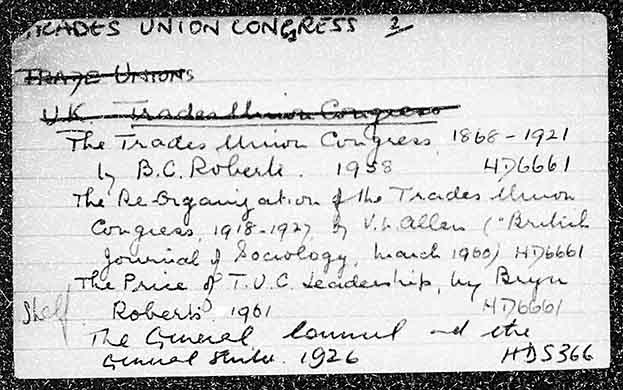 TRADES UNION CONGRESS 2
TRADE UNIONS
U.K. Trades Union Congress
The Trades Union Congress, 1868-1921
by B.C. Roberts. 1958 HD6661
The Re-Organization of the Trades Union
Congress, 1918-1927, by V.L. Allen ("British
Journal of Sociology, March 1960) HD6661
The Price of T.U.C. Leadership, by Bryn
Shelf Roberts, 1961 HD6661
The General Council and the
General Strike. 1926 HD5366